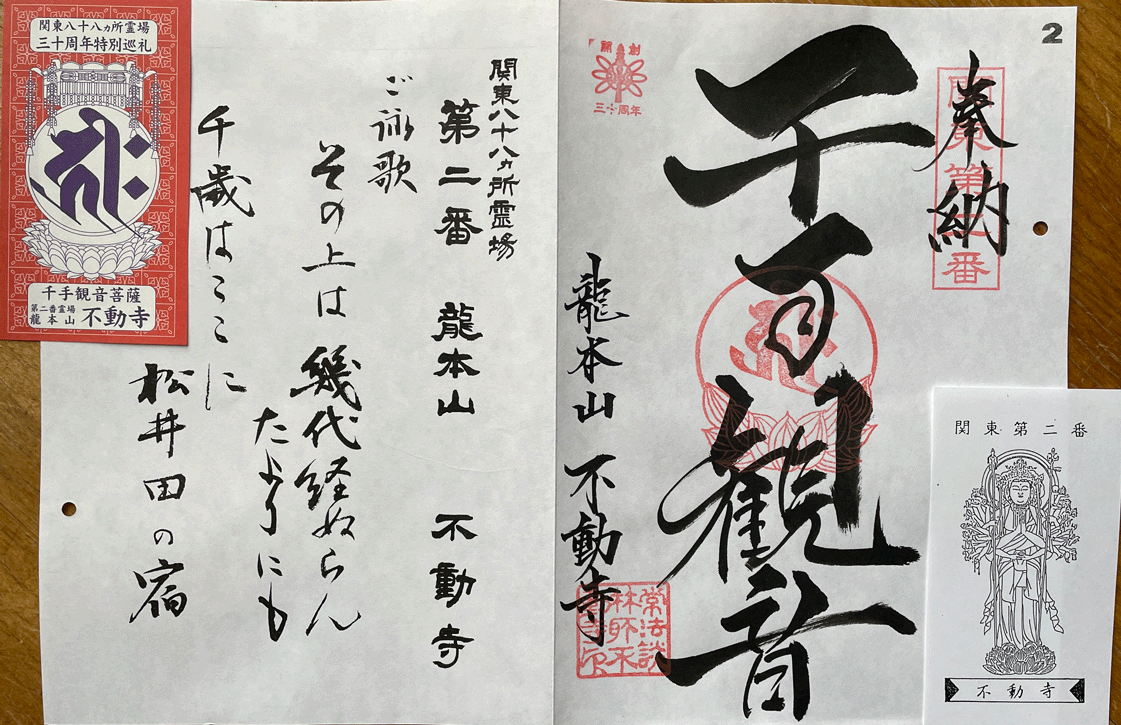 2
奉納
関東第二番
千手観音
「開創
三十周年
龍本山 不動寺
関東八十八ヵ所霊場
第二番 龍本山 不動寺
ご詠歌
その上は 幾代経ぬらん
たよりにも
千歳はここに
松井田の宿
関東八十八ヵ所霊場
三十周年特別巡礼
千手観音菩薩
第二番霊場
龍本山 不動寺
関東第二番
不動寺